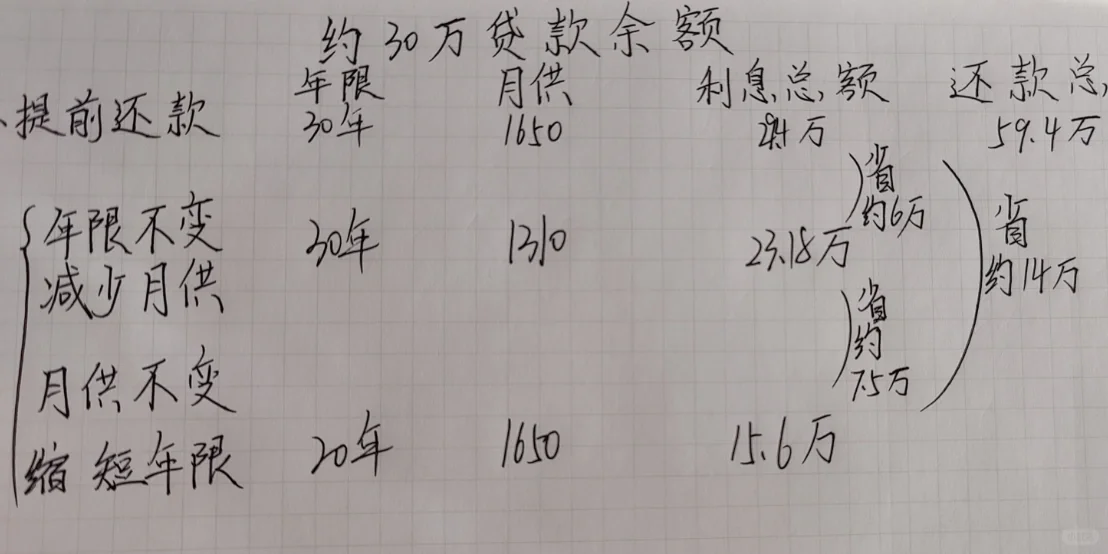 约30万贷款余额
年限 月供 利息总额 还款总
提前还款 30年 1650 29.4万 59.4万
省
约6万
年限不变 30年 1310 23.18万
减少月供
省
约14万
省
约
7.5万
月供不变
缩短年限 20年 1650 15.6万